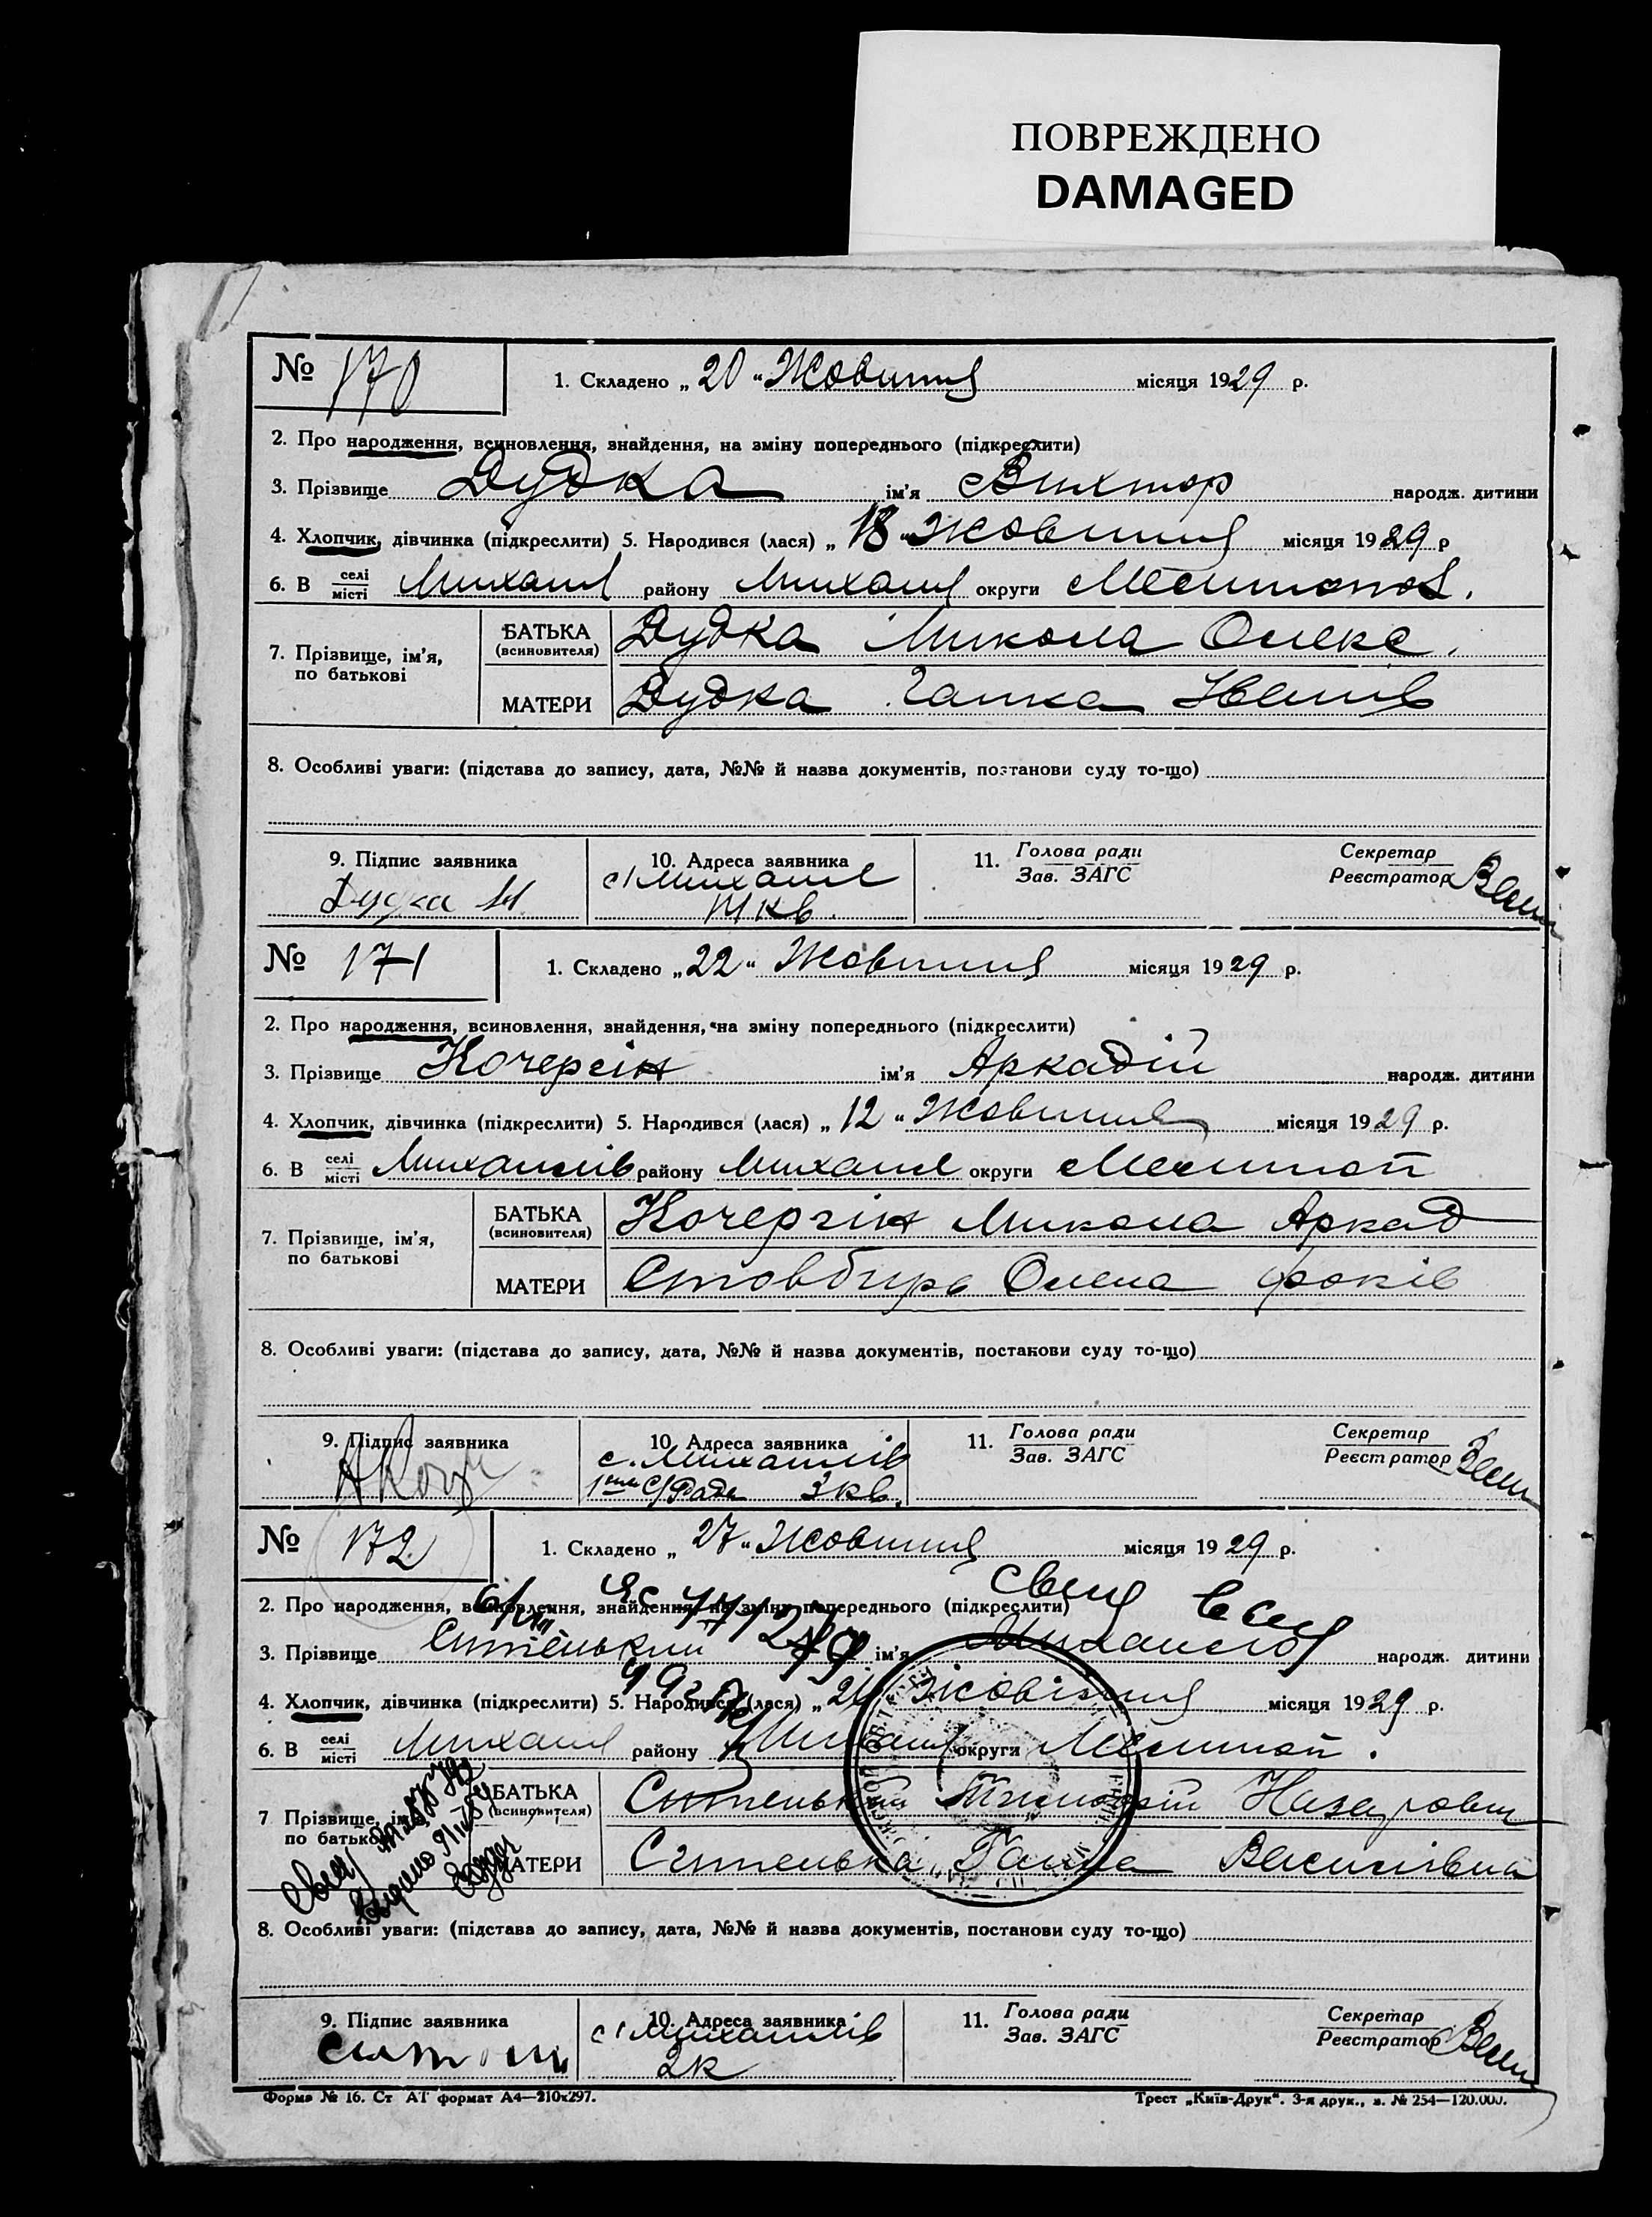 ПОВРЕЖДЕНО
DAMAGED
№ 170 1. Складено „ 20 “ Жовтня місяця 1929 р.
2. Про народження, всиновлення, знайдення, на зміну попереднього (підкреслити)
3. Прізвище Дудка ім'я Виктор народж. дитини
4. Хлопчик, дівчинка (підкреслити) 5. Народився (лася) „ 18 “ Жовтня місяця 1929 р
6. В селі місті Михайл району Михайл округи Мелитопол.
7. Прізвище, ім'я, по батькові
БАТЬКА (всиновителя) Дудка Микола Олекс.
МАТЕРИ Дудка Ганна Іванів
8. Особливі уваги: (підстава до запису, дата, №№ й назва документів, постанови суду то-що)
9. Підпис заявника 10. Адреса заявника 11. Голова ради Зав. ЗАГС Секретар Реєстратор
Дудка М. с. Михайл
кв.
№ 171 1. Складено „ 22 “ Жовтня місяця 1929 р.
2. Про народження, всиновлення, знайдення, на зміну попереднього (підкреслити)
3. Прізвище Кочергін ім'я Аркадій народж. дитини
4. Хлопчик, дівчинка (підкреслити) 5. Народився (лася) „ 12 “ Жовтня місяця 1929 р.
6. В селі місті Михайлів району Михайл округи Мелитоп
7. Прізвище, ім'я, по батькові
БАТЬКА (всиновителя) Кочергін Микола Аркад
МАТЕРИ Стовбирь Олена Фоків
8. Особливі уваги: (підстава до запису, дата, №№ й назва документів, постанови суду то-що)
9. Підпис заявника 10. Адреса заявника 11. Голова ради Зав. ЗАГС Секретар Реєстратор
с. Михайлів
С/Рада 3 кв.
№ 172 1. Складено „ 27 “ Жовтня місяця 1929 р.
2. Про народження, всиновлення, знайдення, на зміну попереднього (підкреслити)
3. Прізвище ім'я народж. дитини
4. Хлопчик, дівчинка (підкреслити) 5. Народився (лася) „ “ Жовтня місяця 1929 р.
6. В селі місті Михайл району Михайл округи Мелитоп.
7 Прізвище, ім'я, по батькові
БАТЬКА (всиновителя) Назарович
МАТЕРИ Ганна Василівна
8. Особливі уваги: (підстава до запису, дата, №№ й назва документів, постанови суду то-що)
9. Підпис заявника 10. Адреса заявника 11. Голова ради Зав. ЗАГС Секретар Реєстратор
с. Михайлів
2к
Форма № 16. Ст АТ формат А4—210х297. Трест „Київ-Друк“. 3-я друк., з. № 254—120.000.